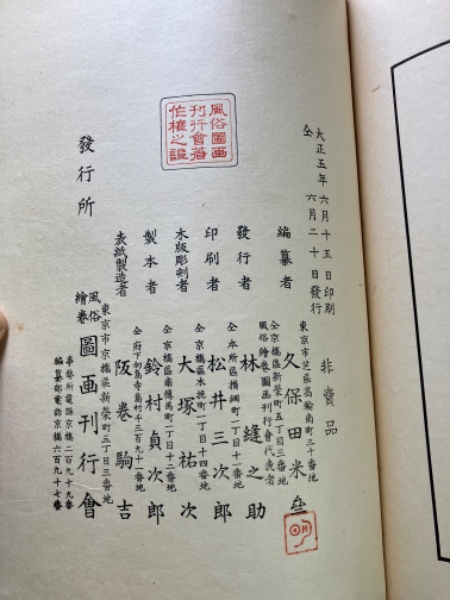 大正五年六月十五日印刷
仝 六月二十日發行
非賣品
編纂者
東京市芝區高輪南町三十番地
久保田米
發行者
仝京橋區新榮町五丁目三番地
風俗繪卷圖画刊行會代表者
林縫之助
印刷者
仝本所區横網町一丁目一番地
松井三次郎
木版彫刻者
仝京橋區木挽町一丁目十四番地
大塚祐次
製本者
仝京橋區南傳馬町一丁目十二番地
鈴村貞次郎
表紙製造者
阪巻駒吉
發行所
東京市京橋區新榮町五丁目三番地
風俗繪卷圖画刊行會
事務所電話京橋二百九十九番
編纂部電話京橋六百九十七番
風俗圖画
刊行會著
作權之證